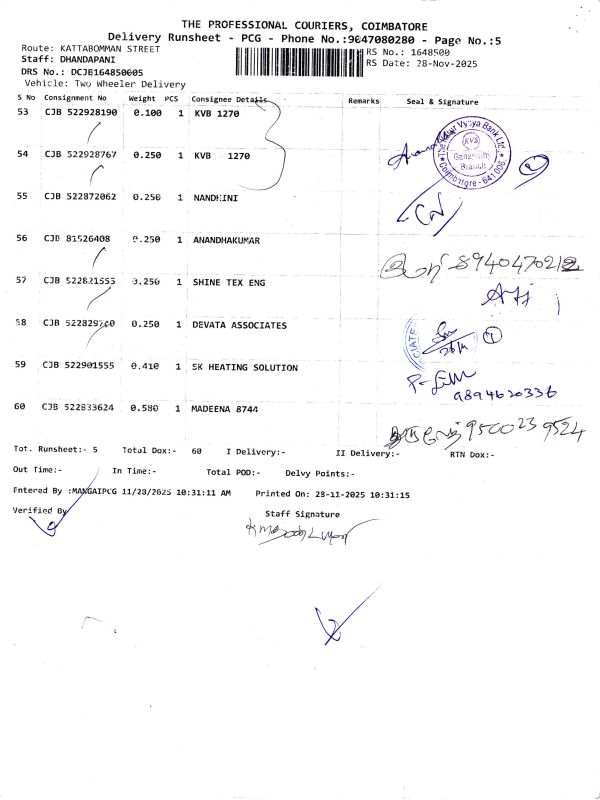 THE PROFESSIONAL COURIERS, COIMBATORE
Delivery Runsheet - PCG - Phone No.:9047080280 - Page No.:5
Route: KATTABOMMAN STREET
RS No.: 1648500
Staff: DHANDAPANI
RS Date: 28-Nov-2025
DRS No.: DCJB164850005
Vehicle: Two Wheeler Delivery
S No Consignment No Weight PCS Consignee Details Remarks Seal & Signature
53 CJB 522928190 0.100 1 KVB 1270
54 CJB 522928767 0.250 1 KVB 1270
The Karur Vysya Bank Ltd.,
KVB
Ganapathy
Branch
Coimbatore - 641 006.
55 CJB 522872062 0.250 1 NANDHINI
56 CJB 81526408 0.250 1 ANANDHAKUMAR
8940470212
57 CJB 522821555 0.250 1 SHINE TEX ENG
58 CJB 522829740 0.250 1 DEVATA ASSOCIATES
CIATE
1
59 CJB 522901555 0.410 1 SK HEATING SOLUTION
9894620336
60 CJB 522833624 0.580 1 MADEENA 8744
9500239524
Tot. Runsheet:- 5 Total Dox:- 60 I Delivery:- II Delivery:- RTN Dox:-
Out Time:- In Time:- Total POD:- Delvy Points:-
Entered By :MANGAIPCG 11/28/2025 10:31:11 AM Printed On: 28-11-2025 10:31:15
Verified By Staff Signature